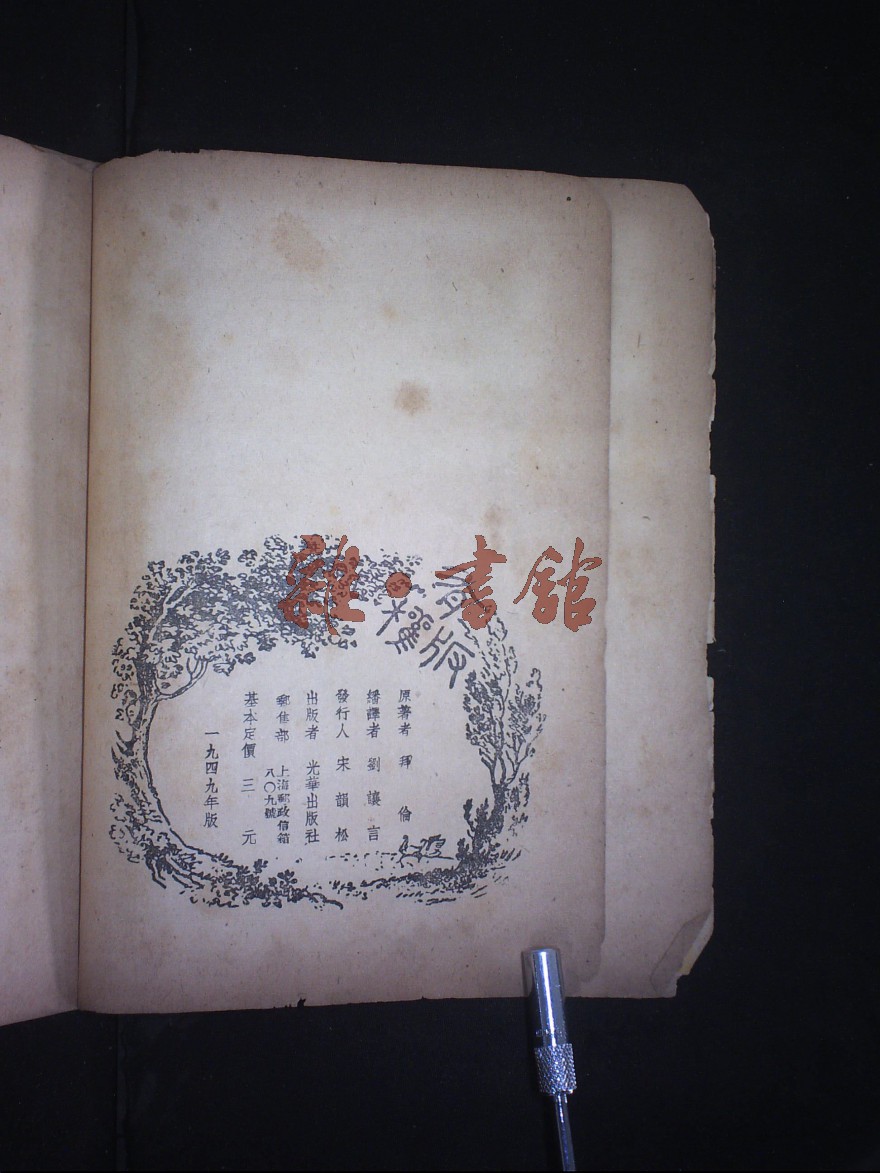 雜·書舘
有權版
原著者 拜倫
繙譯者 劉讓言
發行人 宋韻松
出版者 光華出版社
郵售部 上海郵政信箱
八〇九號
基本定價 三元
一九四九年版